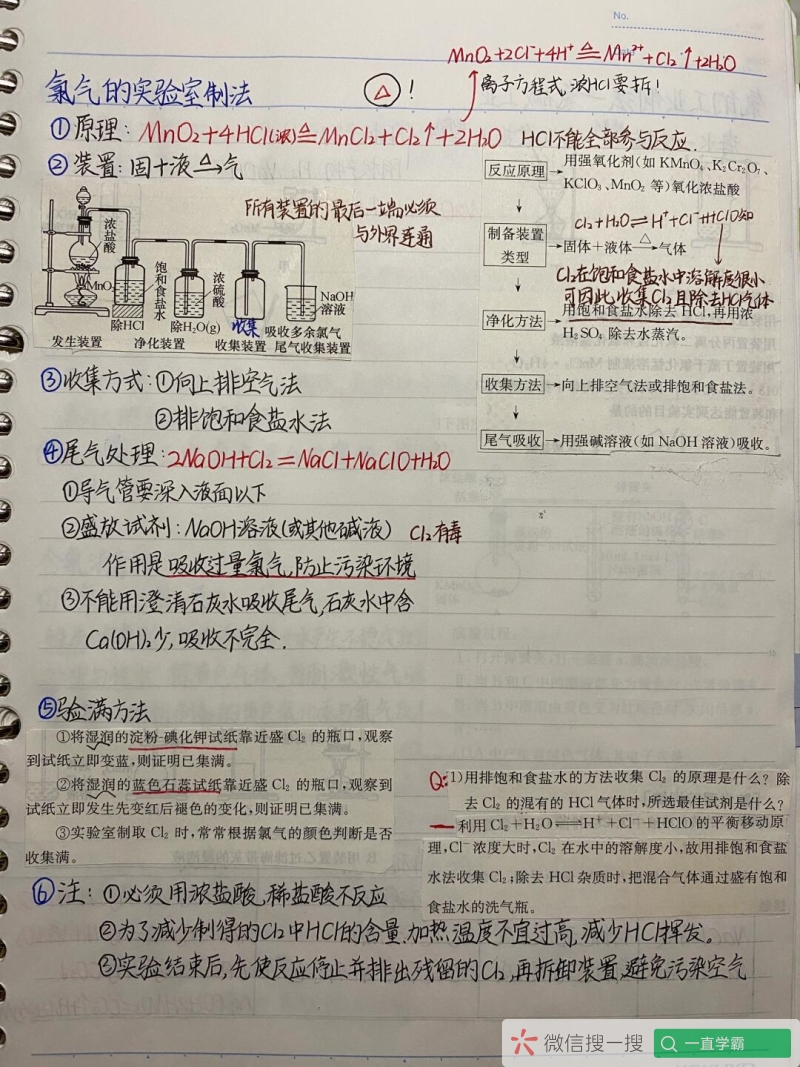 No.
MnO₂+2Cl⁻+4H⁺ ≜ Mn²⁺+Cl₂↑+2H₂O
氯气的实验室制法
△ !
离子方程式,浓HCl要拆!
①原理: MnO₂+4HCl(浓)≜MnCl₂+Cl₂↑+2H₂O HCl不能全部参与反应.
②装置: 固+液 △→气
所有装置的最后一端必须
与外界连通
浓盐酸
MnO₂
饱和食盐水
浓硫酸
NaOH
溶液
除HCl 除H₂O(g) 收集 吸收多余氯气
发生装置 净化装置 收集装置 尾气收集装置
反应原理→用强氧化剂(如 KMnO₄、K₂Cr₂O₇、
KClO₃、MnO₂ 等)氧化浓盐酸
Cl₂+H₂O⇌H⁺+Cl⁻+HClO
制备装置
类型
→固体+液体 △→气体
Cl₂在饱和食盐水中溶解度很小
可因此收集Cl₂且除去HCl气体
净化方法→用饱和食盐水除去 HCl,再用浓
H₂SO₄ 除去水蒸汽。
收集方法→向上排空气法或排饱和食盐法。
尾气吸收→用强碱溶液(如 NaOH 溶液)吸收。
③收集方式:①向上排空气法
②排饱和食盐水法
④尾气处理: 2NaOH+Cl₂=NaCl+NaClO+H₂O
①导气管要深入液面以下
②盛放试剂: NaOH溶液(或其他碱液) Cl₂有毒
作用是吸收过量氯气,防止污染环境
③不能用澄清石灰水吸收尾气,石灰水中含
Ca(OH)₂少,吸收不完全.
⑤验满方法
①将湿润的淀粉-碘化钾试纸靠近盛 Cl₂ 的瓶口,观察
到试纸立即变蓝,则证明已集满。
②将湿润的蓝色石蕊试纸靠近盛 Cl₂ 的瓶口,观察到
试纸立即发生先变红后褪色的变化,则证明已集满。
③实验室制取 Cl₂ 时,常常根据氯气的颜色判断是否
收集满。
Q:1)用排饱和食盐水的方法收集 Cl₂ 的原理是什么? 除
去 Cl₂ 的混有的 HCl 气体时,所选最佳试剂是什么?
利用 Cl₂+H₂O⇌H⁺+Cl⁻+HClO 的平衡移动原
理,Cl⁻ 浓度大时,Cl₂ 在水中的溶解度小,故用排饱和食盐
水法收集 Cl₂;除去 HCl 杂质时,把混合气体通过盛有饱和
食盐水的洗气瓶。
⑥注: ①必须用浓盐酸,稀盐酸不反应
②为了减少制得的Cl₂中HCl的含量.加热温度不宜过高,减少HCl挥发。
③实验结束后,先使反应停止并排出残留的Cl₂,再拆卸装置,避免污染空气
微信搜一搜 一直学霸